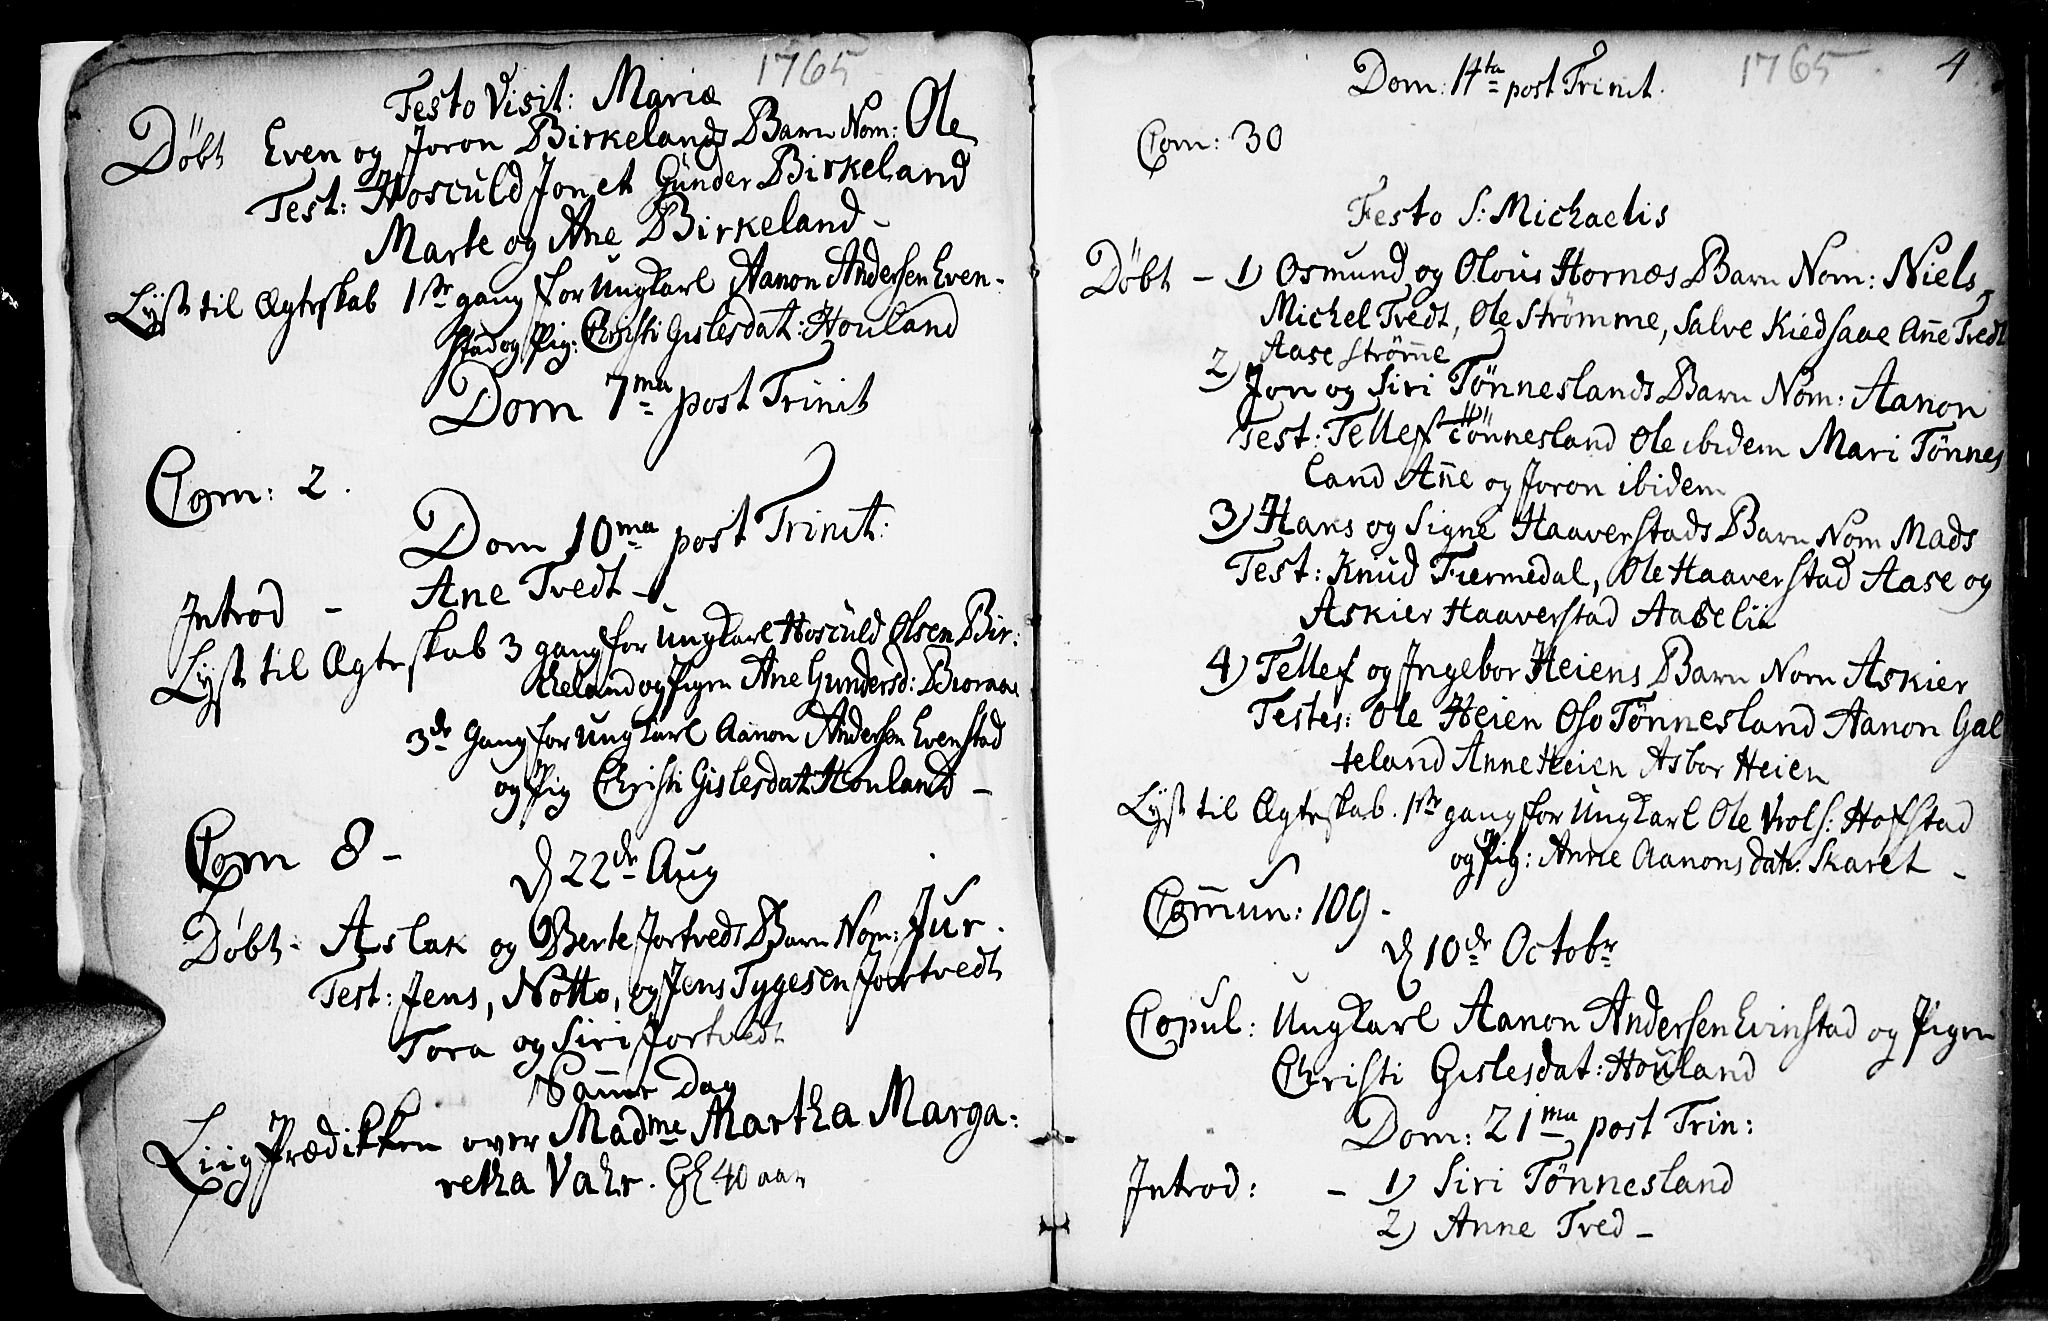 1765
Festo Visit: Mariæ
Døbt Even og Joron Birkelands Barn Nom: Ole
Test: Hosculd Jon et Gunder Birkeland
Marte og Ane Birkeland -
Lyst til Ægteskab 1ste gang for Ungkarl Aanon Andersen Even-
stad og Pig: Christi Gislesdat: Houland
Dom 7ma post Trinit
Com: 2.
Dom 10ma post Trinit:
Introd - Ane Tvedt -
Lyst til Ægteskab 3 gang for Ungkarl Hosculd Olsen Bir:
cheland og Pigen Ane Gundersd:
3de Gang for Ungkarl Aanon Andersen Evenstad
og Pig Christi Gislesdat Houland -
Com 8 -
d 22de Aug
Døbt - Aslak og Berte Jortveds Barn Nom: Jur.
Test: Jens, Notto, og Jens Tygesen Jortvedt
Tora og Siri Jortvedt
Samme Dag
Liig Prædikken over Madme Martha Marga:
retha Vahr. Gl 40 aar
1765 4
Dom: 14ta post Trinit.
Com: 30
Festo S: Michaelis
Døbt - 1) Osmund og Olous Hornæs Barn Nom: Niels
Michel Tvedt, Ole Strømme, Salve Kiedsaae Anne Tvedt
Aase Strømme
2) Jon og Siri Tønneslands Barn Nom: Aanon
Test: Tellef Tönnesland Ole ibidem Mari Tønnes
land Anne og Joron ibidem
3) Hans og Signe Haaverstads Barn Nom Mads
Test: Knud Fiermedal, Ole Haaverstad Aase og
Askier Haaverstad Aase Lii
4) Tellef og Ingebor Heiens Barn Nom Askier
Testes: Ole Heien Oso Tønnesland Aanon Gal
teland Anne Heien Asbor Heien
Lyst til Ægteskab. 1ste gang for Ungkarl Ole Hofstad
og Pig: Anne Aanonsdatr: Skaret -
Commun: 109 -
d 10de Octobr
Copul: Ungkarl Aanon Andersen Evinstad og Pigen
Christi Gislesdat: Houland
Dom: 21ma post Trin:
Introd: - 1) Siri Tønnesland
2) Anne Tved -